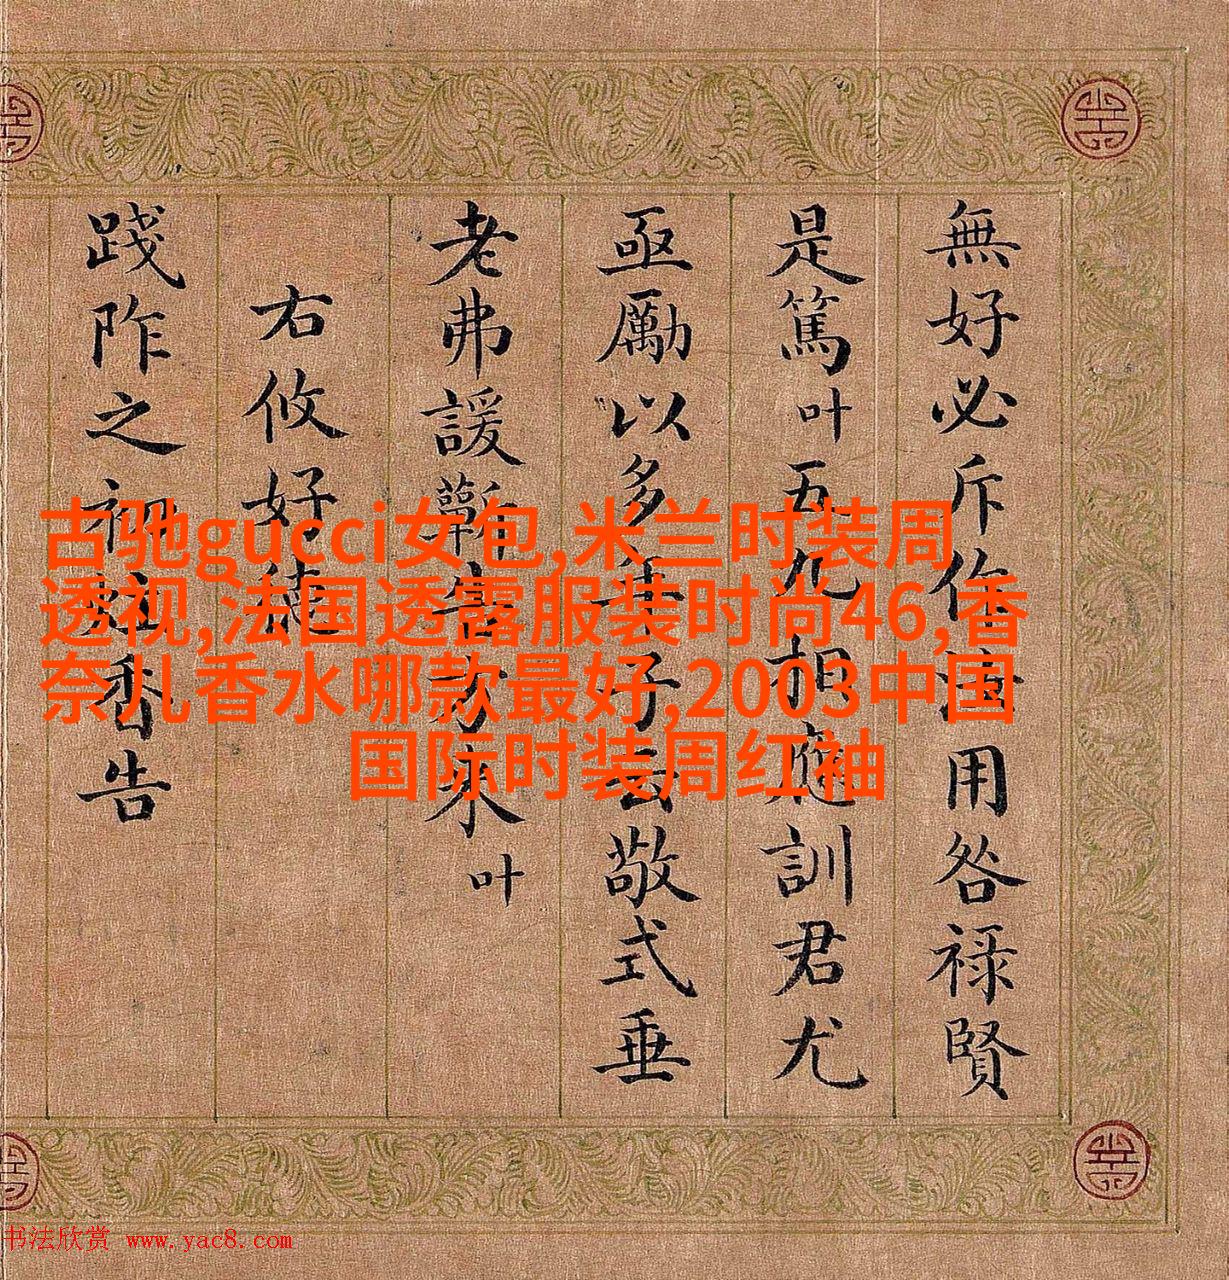 無好必斥作用咎禄賢
是篤叶五九相應訓君尤
亟勵以多好云敬式垂
老弗諼蘄方來叶
右攸好德
踐阼之初香告
古驰gucci女包,米兰时装周
透视,法国透露服装时尚46,香
奈儿香水哪款最好,2003中国
国际时装周红袖
书法欣赏 www.yac8.com